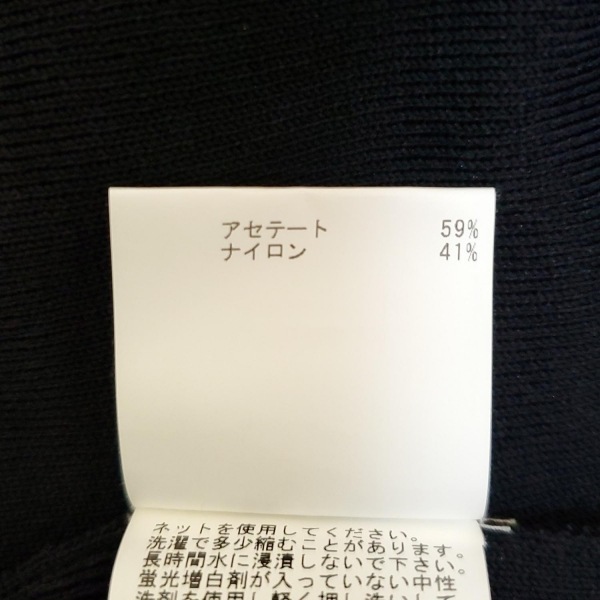 アセテート 59%
ナイロン 41%
ネットを使用してください。
洗濯で多少縮むことがあります。
長時間水に浸漬しないで下さい。
蛍光増白剤が入っていない中性
洗剤を使用し軽く押し洗いして